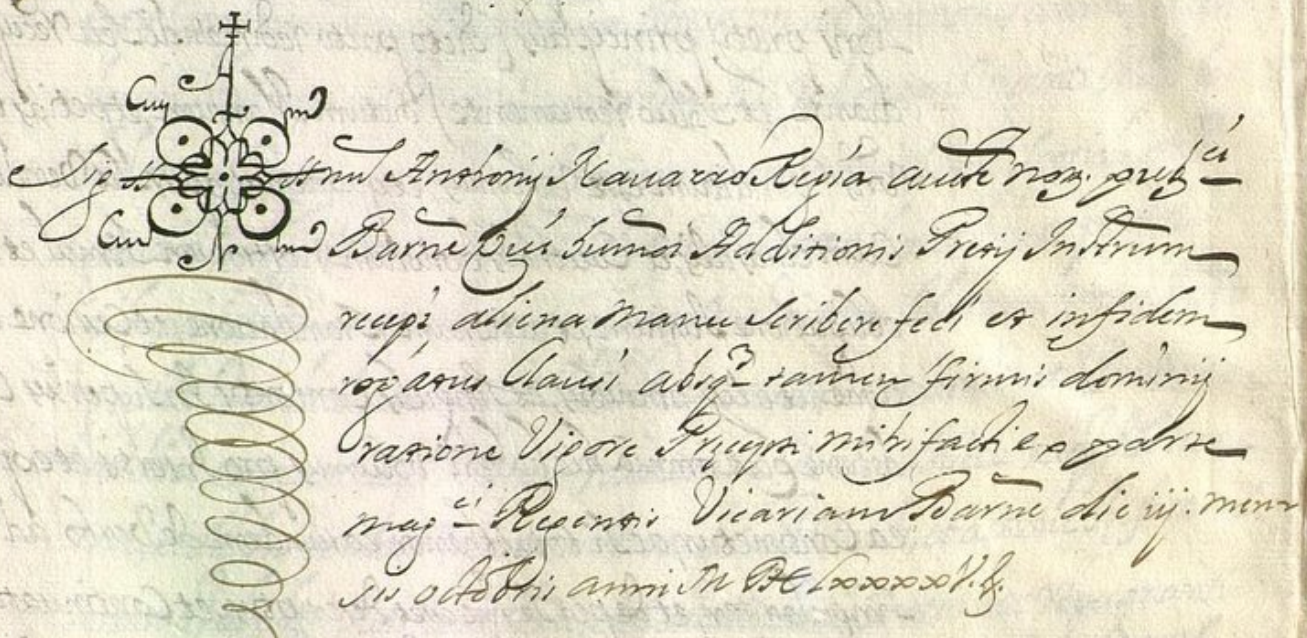 Sig num Anthonij Nauarro Regia aucte not. publci
Barne Qui humoi Additionis Pretij Instrum
recepi aliena manu scribere feci et in fidem
rogatus Clausi absq tamen firmis dominij
ratione Vigore Precepti mihi facti ex parte
magci Regentis Vicariam Barne die iij. men
sis octobris anni M DC Lxxxxv. &.